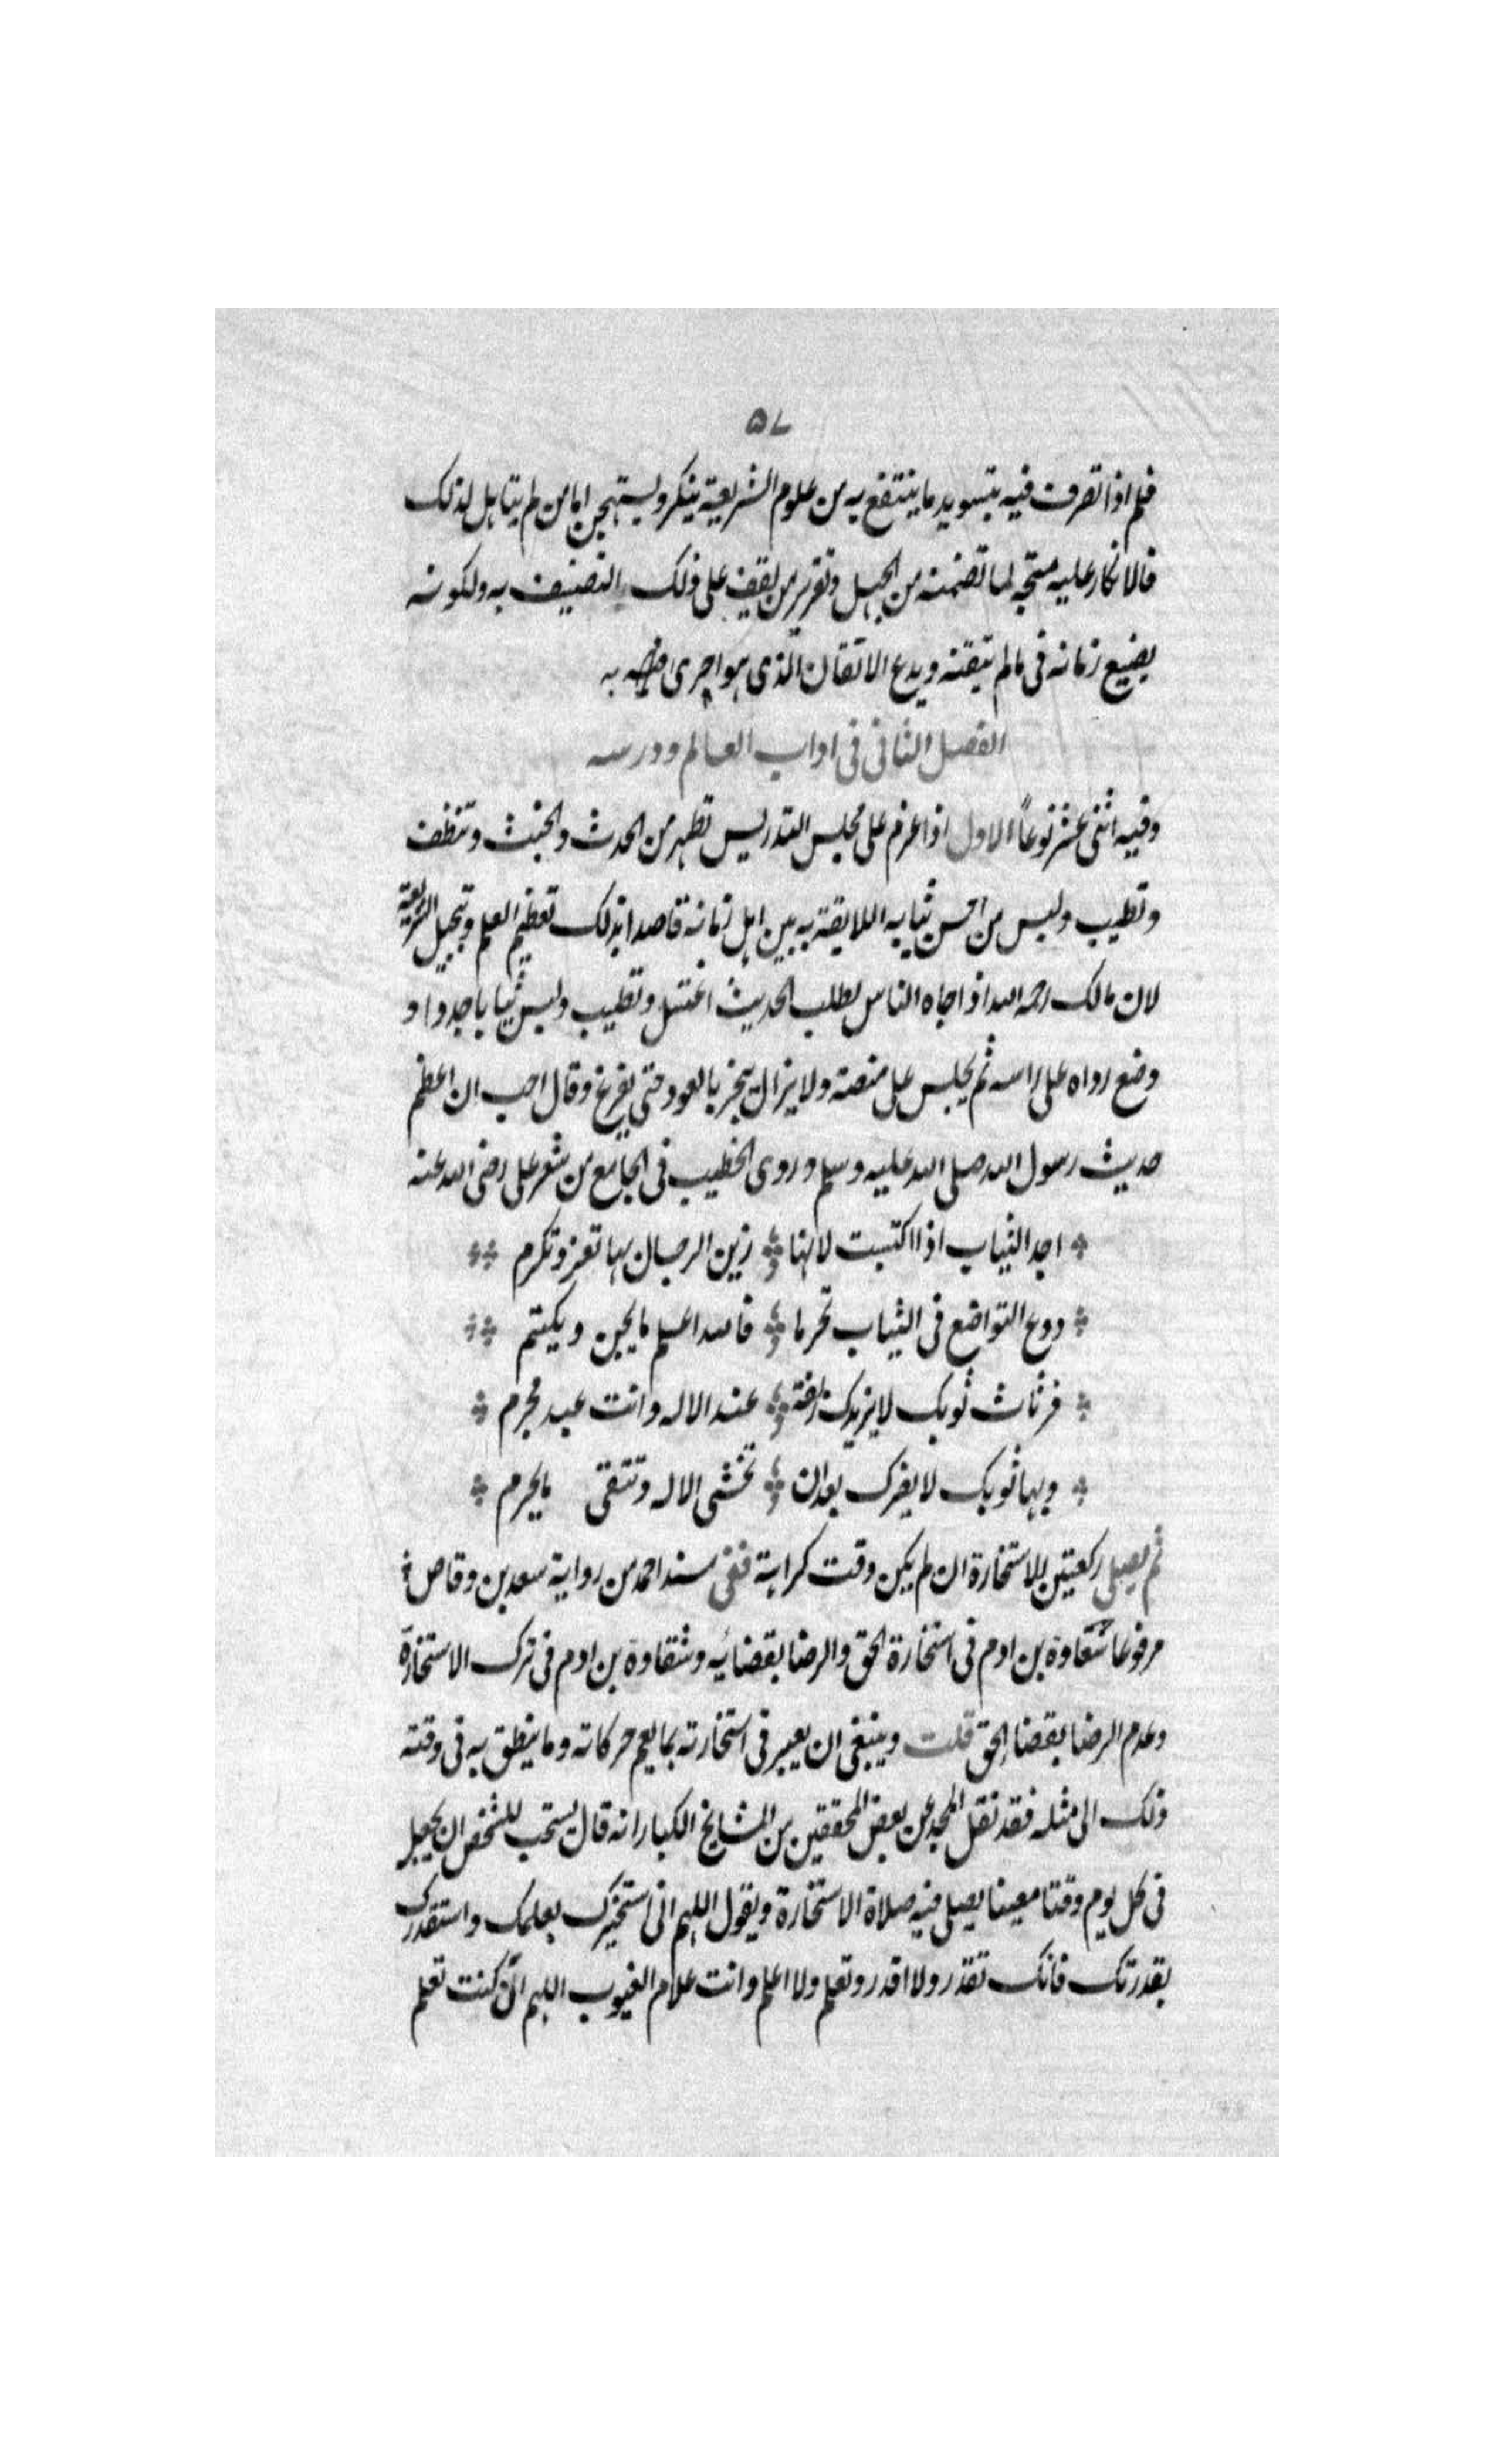 ٥٧
فلم اذا تصرف فيه بتسويد ما ينتفع به من علوم الشريعة ينكر ويستهجن اما من لم يتاهل لذلك
فالانكار عليه متجه لما تضمنه من الجهل وتغرير من يقف على ذلك التصنيف به ولكونه
يضيع زمانه فى مالم يتقنه ويدع الاتقان الذى هو احرى به
الفصل الثانى فى اداب العالم ودرسه
وفيه اثنى عشر نوعاً الاول اذا عزم على مجلس التدريس تطهر من الحدث والخبث وتنظف
وتطيب ولبس من احسن ثيابه اللايقة به بين اهل زمانه قاصدا بذلك تعظيم العلم وتبجيل الشريعة
لان مالك رحمه الله اذا جاه الناس لطلب الحديث اغتسل وتطيب ولبس ثيابا جددا و
وضع رداه على راسه ثم يجلس على منصة ولا يزال يبخر بالعود حتى يفرغ وقال احب ان اعظم
حديث رسول الله صلى الله عليه وسلم وروى الخطيب فى الجامع من شعر على رضى الله عنه
اجد الثياب اذا اكتسبت لانها زين الرجال بها تعز وتكرم
ودع التواضع فى الثياب تحرما فالله اعلم ما يجن ويكتم
فرثاث ثوبك لا يزيدك زلفة عند الاله وانت عبد مجرم
وبها ثوبك لا يضرك بعد ان تخشى الاله وتتقى ما يحرم
ثم يصلى ركعتين للاستخارة ان لم يكن وقت كراهة ففى مسند احمد من رواية سعد بن وقاص
مرفوعا شقاوة بن ادم فى استخارة الحق والرضا بقضائه وشقاوة بن ادم فى ترك الاستخارة
وعدم الرضا بقضا الحق قلت وينبغى ان يعبر فى استخارته بما يعم حركاته وما ينطق به فى وقته
ذلك الى مثله فقد نقل المجد عن بعض المحققين من المشايخ الكبار انه قال يستحب للشخص ان يجعل
فى كل يوم وقتا معينا يصلى فيه صلاة الاستخارة ويقول اللهم انى استخيرك بعلمك واستقدرك
بقدرتك فانك تقدر ولا اقدر وتعلم ولا اعلم وانت علام الغيوب اللهم ان كنت تعلم